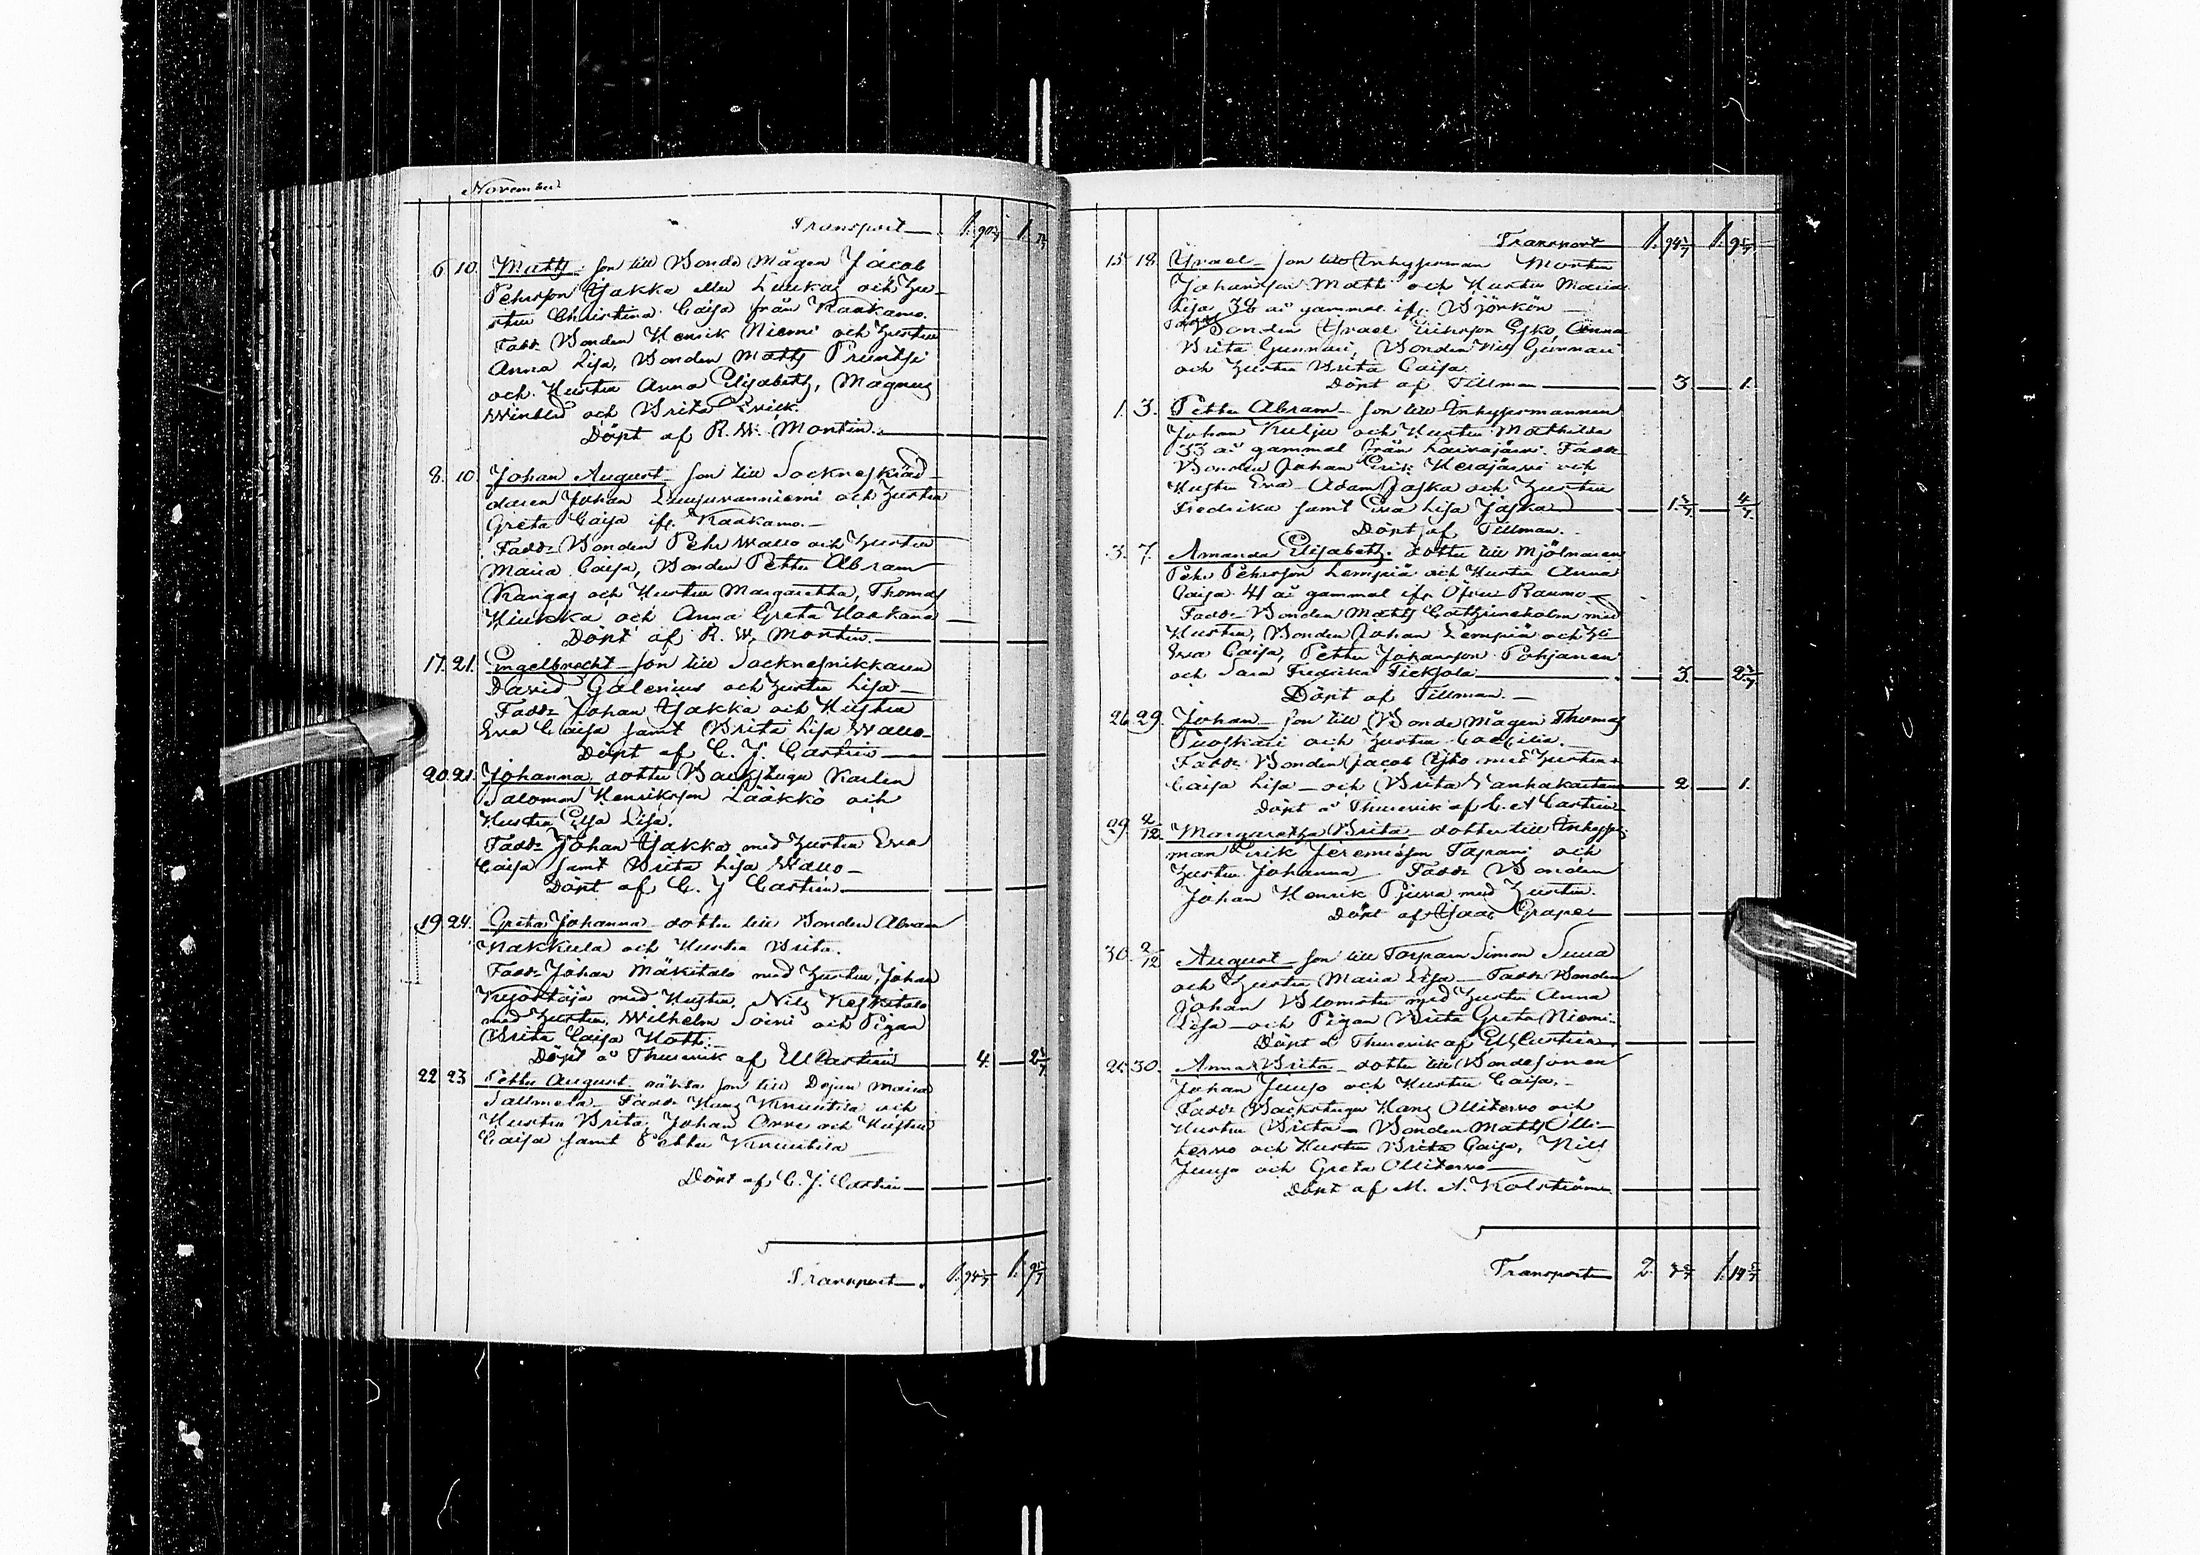 November
Transport 1. 90 1.
6. 10. Matts son till Bonde mågen Jacob
Pehrsson Yakka eller Luukas och Hu-
stru Christina Caisa från Kaakamo.
Fadd: Bonden Henrik Niemi och Hustru
Anna Lisa, Bonden Matts Prüntsi
och Hustru Anna Elisabeth, Magnus
och Brita
Döpt af R. W. Montin.
8. 10 Johan August son till Socknesskräd-
daren Johan och Hustru
Greta Caisa ifr. Kaakamo.
Fadd: Bonden Pehr Wallo och Hustru
Maria Caisa, Bonden Petter Abram
Kangas och Hustru Margaretha, Thomas
Hiukka och Anna Greta
Döpt af R. W. Montin.
17. 21. Engelbrecht son till Socknesnikkaren
David Galenius och Hustru Lisa
Fadd: Johan Yakka och Hustru
Eva Caisa samt Brita Lisa Wallo
Döpt af C. J. Castrén
20. 21. Johanna dotter Backstugu Karlen
Salomon Henriksson Lääkkö och
Hustru Elsa Lisa.
Fadd: Johan Yakka med Hustru Eva
Caisa samt Brita Lisa Wallo
Döpt af C. J. Castrén
19 24. Greta Johanna dotter till Bonden Abram
Nakkula och Hustru Brita.
Fadd: Johan Mäkitalo med Hustru, Johan
med Hustru, Nils Keskitalo
med Hustru, Wilhelm Soini och Pigan
Brita Caisa
Döpt å Thurevik af Castrén 4. 2
22 23 Petter August oäkta son till Dejan Maria
Sallmela Fadd: Hans och
Hustru Brita, Johan Orre och Hustru
Caisa samt Petter
Döpt af C. J. Castrén
Transport 1. 94 1. 9
Transport 1. 94 1. 9
15 18. Ysrael son till Inhysesman Morten
Johansson Matti och Hustru Maria
Lisa 38 år gammal ifr. Björkön
Bonden Ysrael Eriksson Esko, Anna
Brita Gunnari, Bonden Nils Gunnari
och Hustru Brita Caisa.
Döpt af Tillman 3 1.
1. 3. Petter Abram son till Inhysesmannen
Johan Kulju och Hustru Mathilda
33 år gammal från Laivajärvi. Fadd:
Bonden Johan Erik Herajärvi och
Hustru Eva Adam Jaska och Hustru
Fredrika samt Eva Lisa Jaska 1 4/7
Döpt af Tillman.
3. 7. Amanda Elisabeth dotter till Mjölnaren
Pehr Pehrsson Lempiä och Hustru Anna
Caisa 41 år gammal ifr. Öfver Raumo
Fadd: Bonden Matts Cathrineholm med
Hustru, Bonden Johan Lempiä och Hu
Eva Caisa, Petter Johansson Pohjanen
och Sara Fredrika 3. 2
Döpt af Tillman.
26 29. Johan son till Bonde mågen Thomas
och Hustru Caecilia.
Fadd: Bonden Jacob Esko med Hustru
Caisa Lisa och Brita Wanhakaitan 2 1.
Döpt å Thurevik af Castrén
29. 2/12. Margaretha Brita dotter till Inhyses-
man Erik Jeremiesson Tapani och
Hustru Johanna Fadd: Bonden
Johan Henrik med Hustru.
Döpt af Isac Grape
30. 2/12 August son till Torparn Simon
och Hustru Maria Lisa Fadd: Bonden
Johan Blomster med Hustru Anna
Lisa och Pigan Brita Greta Niemi.
Döpt å Thurevik af Castrén
30. Anna Brita dotter till Bondesonen
Johan Juuso och Hustru Caisa.
Fadd: Backstugu Hans Ollitervo och
Hustru Brita Bonden Matts Olli-
tervo och Hustru Brita Caisa, Nils
Juuso och Greta Ollitervo
Döpt af M. A. Kolström.
Transport 2. 1. 14